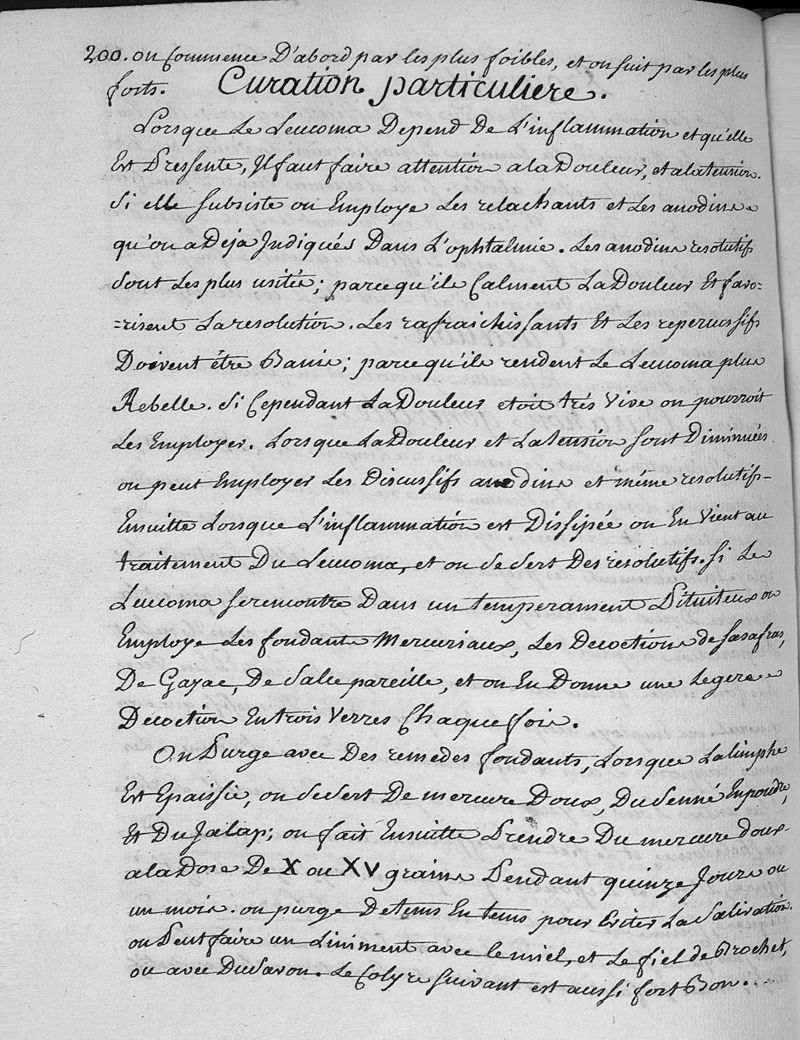 200. on Commence D'abord par les plus foibles, et on suit par les plus
forts. Curation particuliere.
Lorsque Le Leucoma Depend De L'inflammation et qu'elle
Est Pressente, Il faut faire attention a la Douleur, et a la tension.
Si elle subsiste on Employe Les relachants et Les anodins
qu'on a Deja Indiqués Dans L'ophtalmie. Les anodins resolutifs
sont Les plus usités; parcequ'ils Calment La Douleur Et favo=
=risent La resolution. Les rafraichissants Et Les repercussifs
Doivent être Banis; parcequ'ils rendent Le Leucoma plus
Rebelle. Si Cependant La Douleur etoit trés vive on pourroit
Les Employer. Lorsque La Douleur et La tension sont Diminuées
on peut Employer Les Discussifs anodins et même resolutifs.
Ensuitte Lorsque L'inflammation est Dissipée on En vient au
traitement Du Leucoma, et on se sert Des resolutifs. Si Le
Leucoma se rencontre Dans un temperament Pituiteux on
Employe Les fondants Mercuriaux, Les Decoctions de Sasafras,
De Gayac, De Salsepareille, et on En Donne une Legere
Decoction En trois verres Chaque fois.
On Purge avec Des remedes fondants, Lorsque La limphe
Est Epaissie, on se sert De mercure Doux, Du Senné En poudre,
Et Du Jalap; on fait Ensuitte Prendre Du mercure doux
a la Dose De X ou XV grains Pendant quinze Jours ou
un mois. on purge De tems En tems pour Eviter La Salivation.
on Peut faire un Liniment avec le miel, et Le fiel de Brochet,
ou avec Du Savon. Le Colyre suivant est aussi fort Bon...